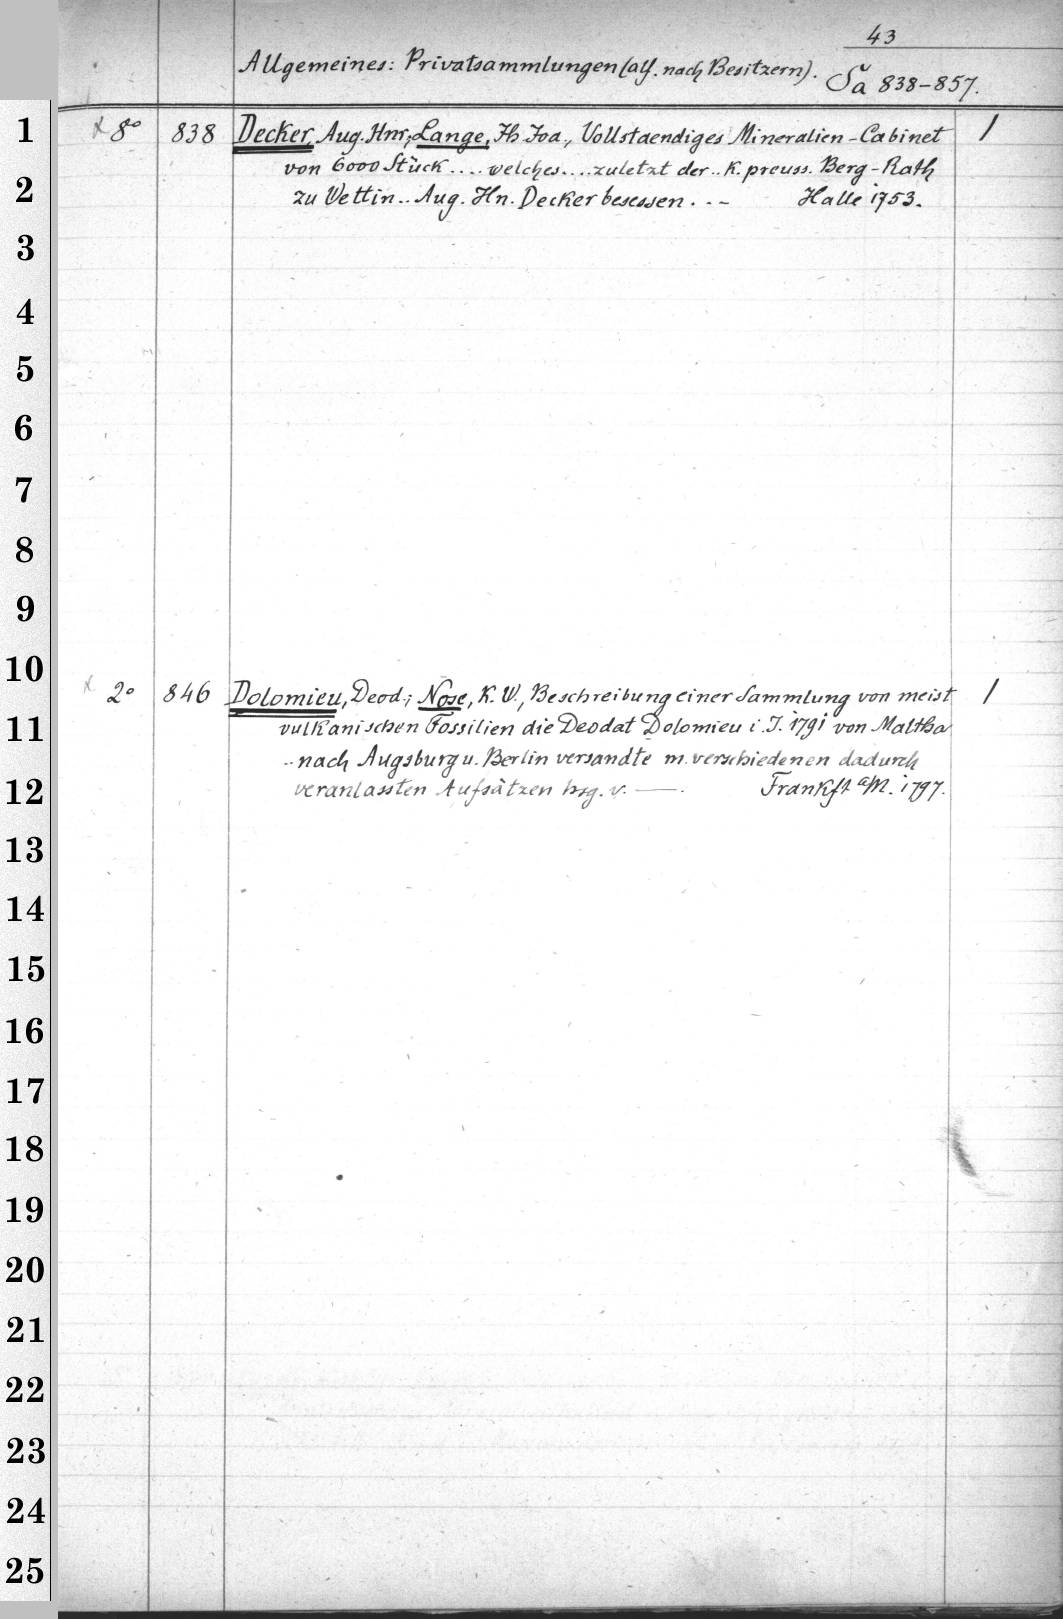 43
Allgemeines: Privatsammlungen (alf. nach Besitzern). Sa 838-857.
1
x 8° 838 Decker, Aug. Hnr., Lange, Jh. Joa., Vollstaendiges Mineralien-Cabinet 1
von 6000 Stück .... welches .... zuletzt der .. K. preuss. Berg-Rath
2
zu Wettin .. Aug. Hn. Decker besessen . . - Halle 1753.
3
4
5
6
7
8
9
10
x 2° 846 Dolomieu, Deod.; Nose, K. W., Beschreibung einer Sammlung von meist 1
11
vulkanischen Fossilien die Deodat Dolomieu i. J. 1791 von Maltha
.. nach Augsburg u. Berlin versandte m. verschiedenen dadurch
12
veranlassten Aufsätzen hsg. v. —. Frankft a/M. 1797.
13
14
15
16
17
18
19
20
21
22
23
24
25